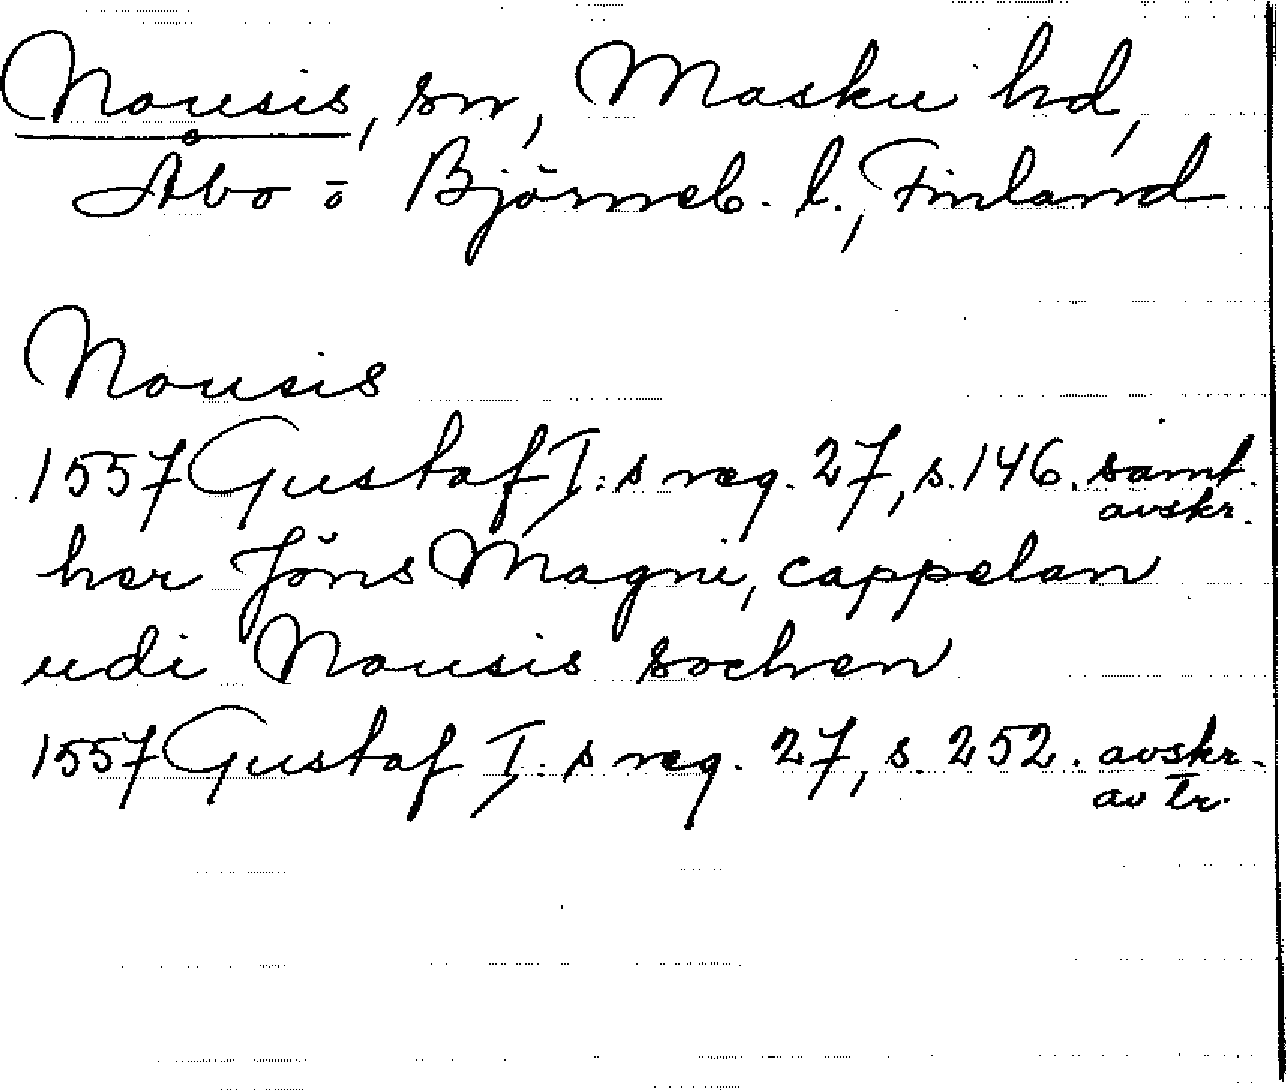 Nousis, sn, Masku hd,
Åbo o Björneb. l., Finland
Nousis
1557 Gustaf I:s reg. 27, s. 146. samt.
avskr.
her Jöns Magni, cappelan
udi Nousis sochen
1557 Gustaf I:s reg. 27, s. 252. avskr.
av tr.